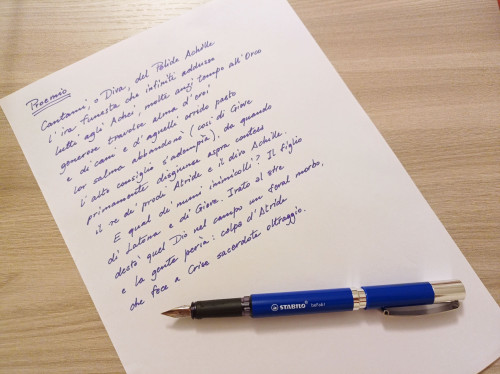 Proemio
Cantami, o Diva, del Pelide Achille
l'ira funesta che infiniti addusse
lutti agli Achei, molte anzi tempo all'Orco
generose travolse alme d'eroi
e di cani e d'augelli orrido pasto
lor salme abbandonò (così di Giove
l'alto consiglio s'adempìa), da quando
primamente disgiunse aspra contesa
il re de' prodi Atride e il divo Achille.
E qual de' numi inimicolli? Il figlio
di Latona e di Giove. Irato al Sire
destò quel Dio nel campo un feral morbo,
e la gente perìa: colpa d'Atride
che fece a Crise sacerdote oltraggio.
STABILO